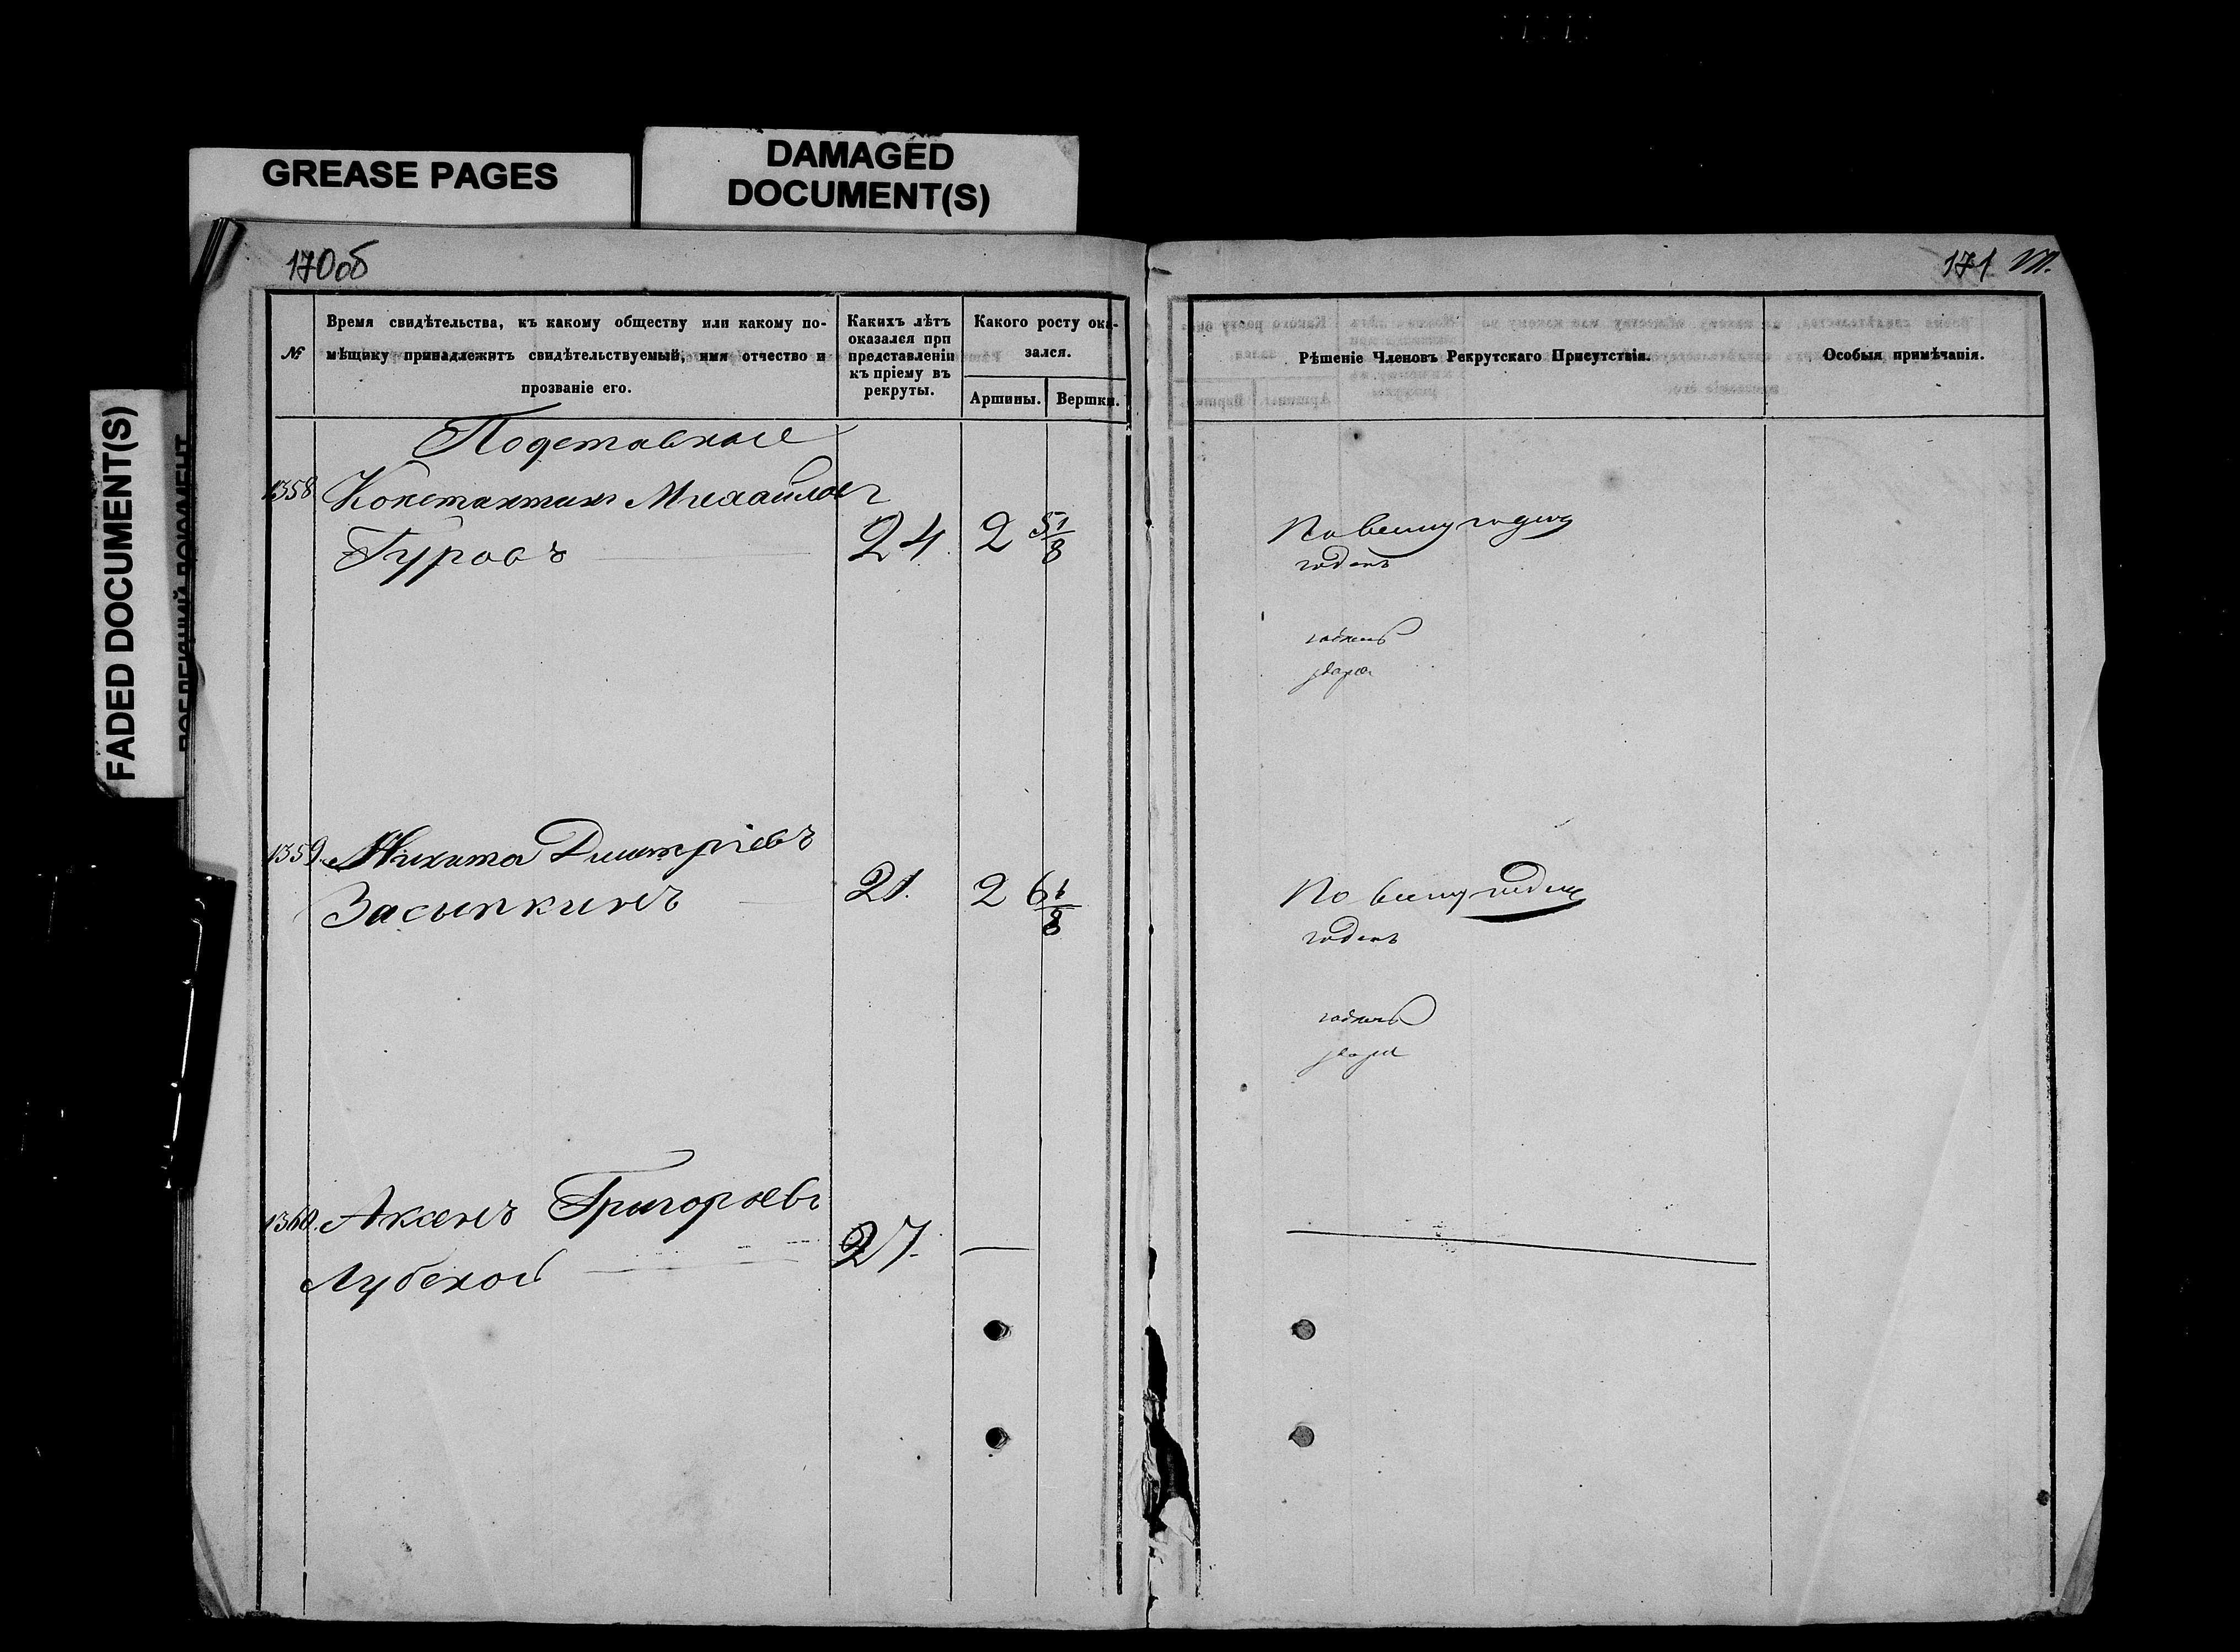 GREASE PAGES
DAMAGED
DOCUMENT(S)
FADED DOCUMENT(S)
170об
171
№
Время свидѣтельства, къ какому обществу или какому по-
мѣщику принадлежитъ свидѣтельствуемый, имя отчество и
прозваніе его.
Какихъ лѣтъ
оказался при
представленіи
къ пріему въ
рекруты.
Какого росту ока-
зался.
Аршины. Вершки.
Рѣшеніе Членовъ Рекрутскаго Присутствія.
Особыя примѣчанія.
Подставные
1358 Константинъ Михайловъ
Гуровъ 24. 2 5 1/8
По всему годенъ
годенъ
годенъ
1359. Никита Дмитріевъ
Засыпкинъ 21. 2 6 1/8
По всему годенъ
годенъ
годенъ
1360. Аксенъ Григорьевъ
Лубеной 27. —